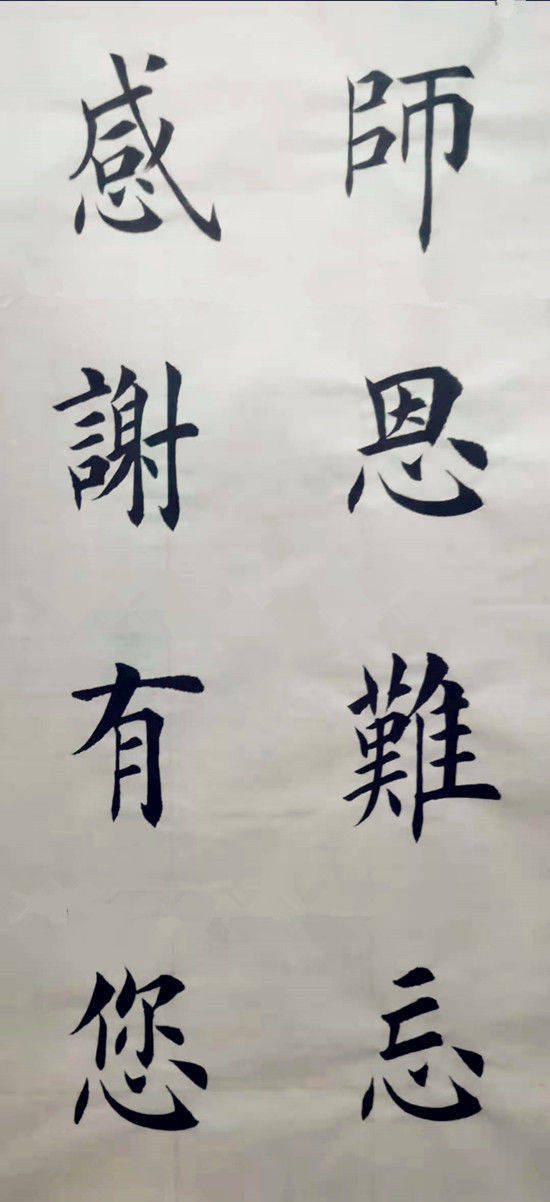 師恩難忘
感謝有您